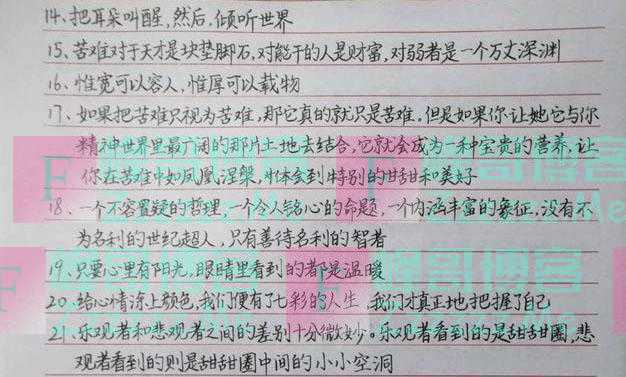 14、把耳朵叫醒,然后,倾听世界
15、苦难对于天才是块垫脚石,对能干的人是财富,对弱者是一个万丈深渊
16、惟宽可以容人,惟厚可以载物
17、如果把苦难只视为苦难,那它真的就只是苦难,但是如果你让她它与你
精神世界里最广阔的那片土地去结合,它就会成为一种宝贵的营养,让
你在苦难中如凤凰涅槃,体会到特别的甘甜和美好
18、一个不容置疑的哲理,一个令人铭心的命题,一个内涵丰富的象征,没有不
为名利的世纪超人,只有善待名利的智者
19、只要心里有阳光,眼睛里看到的都是温暖
20、给心情涂上颜色,我们便有了七彩的人生,我们才真正地把握了自己
21、乐观者和悲观者之间的差别十分微妙。乐观者看到的是甜甜圈,悲
观者看到的则是甜甜圈中间的小小空洞